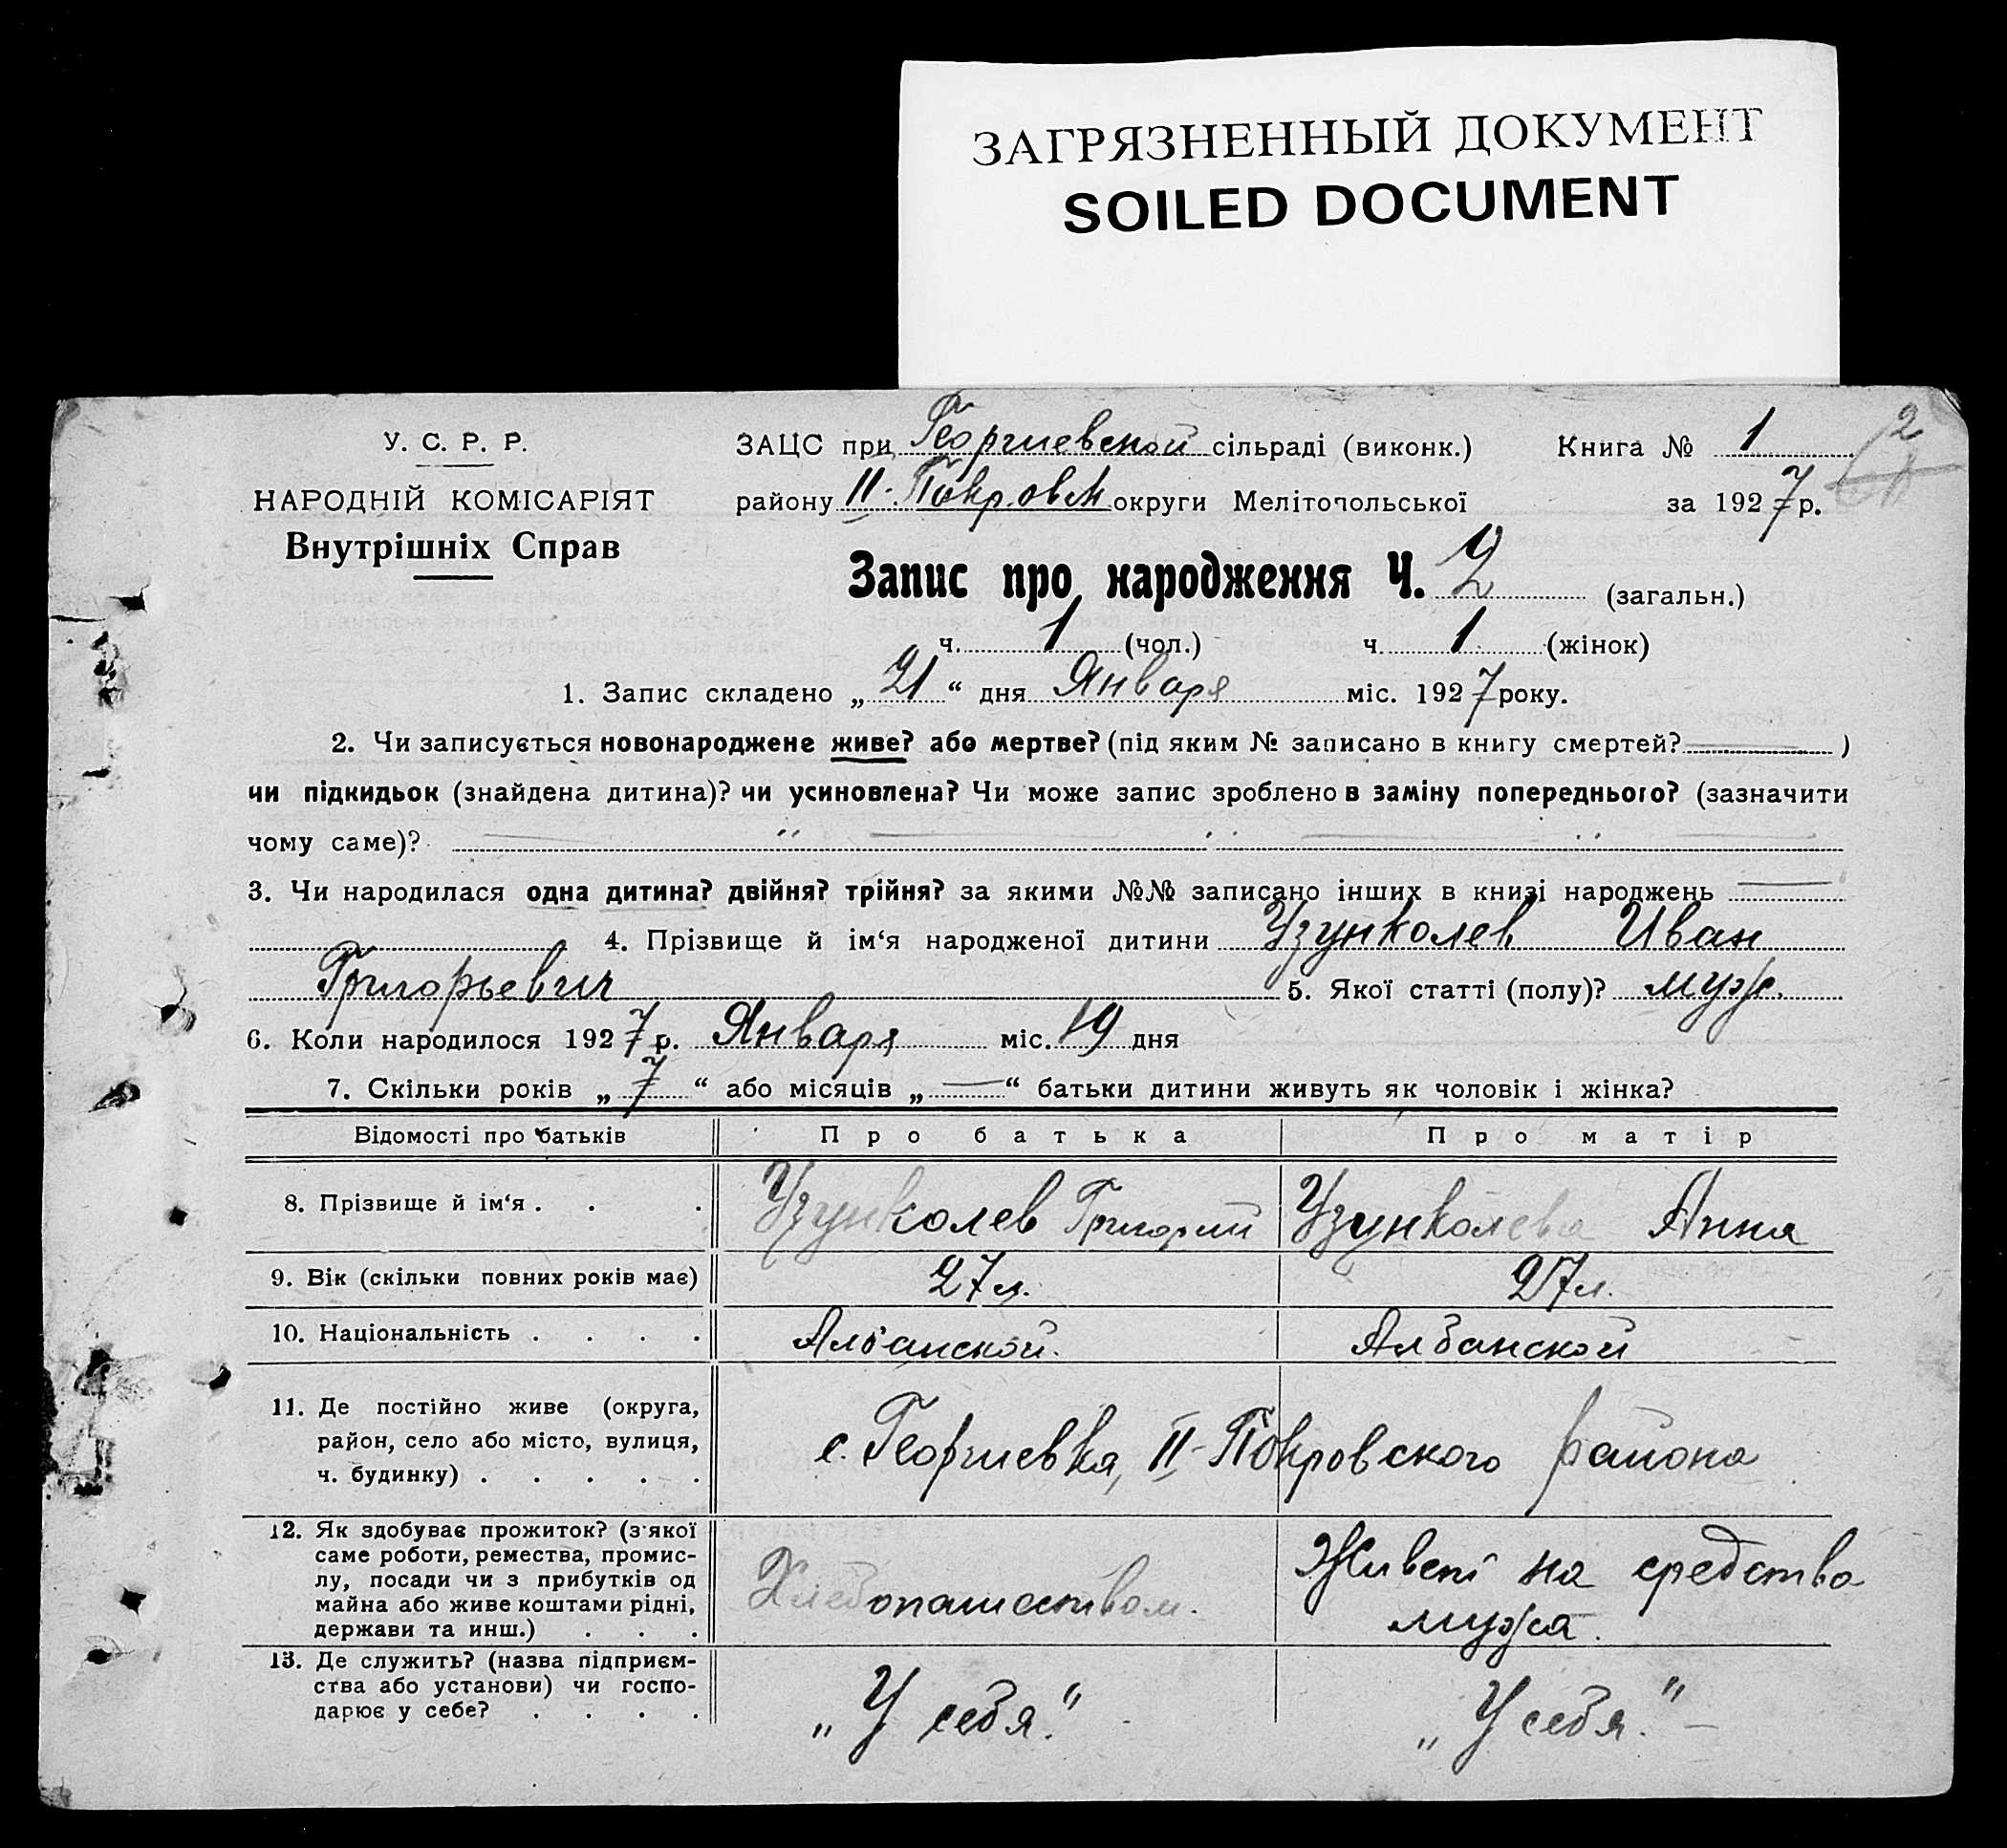 ЗАГРЯЗНЕННЫЙ ДОКУМЕНТ
SOILED DOCUMENT
У. С. Р. Р.
НАРОДНІЙ КОМІСАРІЯТ
Внутрішніх Справ
ЗАЦС при Георгиевской сільраді (виконк.) Книга № 1
2
району II-Покровск округи Мелітопольської за 1927 р.
Запис про народження Ч. 2 (загальн.)
ч. 1 (чол.) ч. 1 (жінок)
1. Запис складено „ 21 “ дня Января міс. 1927 року.
2. Чи записується новонароджене живе? або мертве? (під яким № записано в книгу смертей? — )
чи підкидьок (знайдена дитина)? чи усиновлена? Чи може запис зроблено в заміну попереднього? (зазначити
чому саме)? — " — " — " —
3. Чи народилася одна дитина? двійня? трійня? за якими №№ записано інших в книзі народжень —
4. Прізвище й ім‘я народженої дитини Узунколев Иван
Григорьевич 5. Якої статті (полу)? муж.
6. Коли народилося 1927 р. Января міс. 19 дня
7. Скільки років „ 7 “ або місяців „ — “ батьки дитини живуть як чоловік і жінка?
Відомості про батьків Про батька Про матір
8. Прізвище й ім‘я . . . Узунколев Григорий Узунколева Анна
9. Вік (скільки повних років має) 27 л. 27 л.
10. Національність . . . . Албанской. Албанской
11. Де постійно живе (округа,
район, село або місто, вулиця,
ч. будинку) . . . . . с. Георгиевка, II-Покровского района
12. Як здобуває прожиток? (з якої
саме роботи, ремества, промис-
лу, посади чи з прибутків од
майна або живе коштами рідні,
держави та инш.) . . . Хлебопашеством. Живет на средства
мужа.
13. Де служить? (назва підприєм-
ства або установи) чи госпо-
дарює у себе? . . . . „У себя." „У себя." —